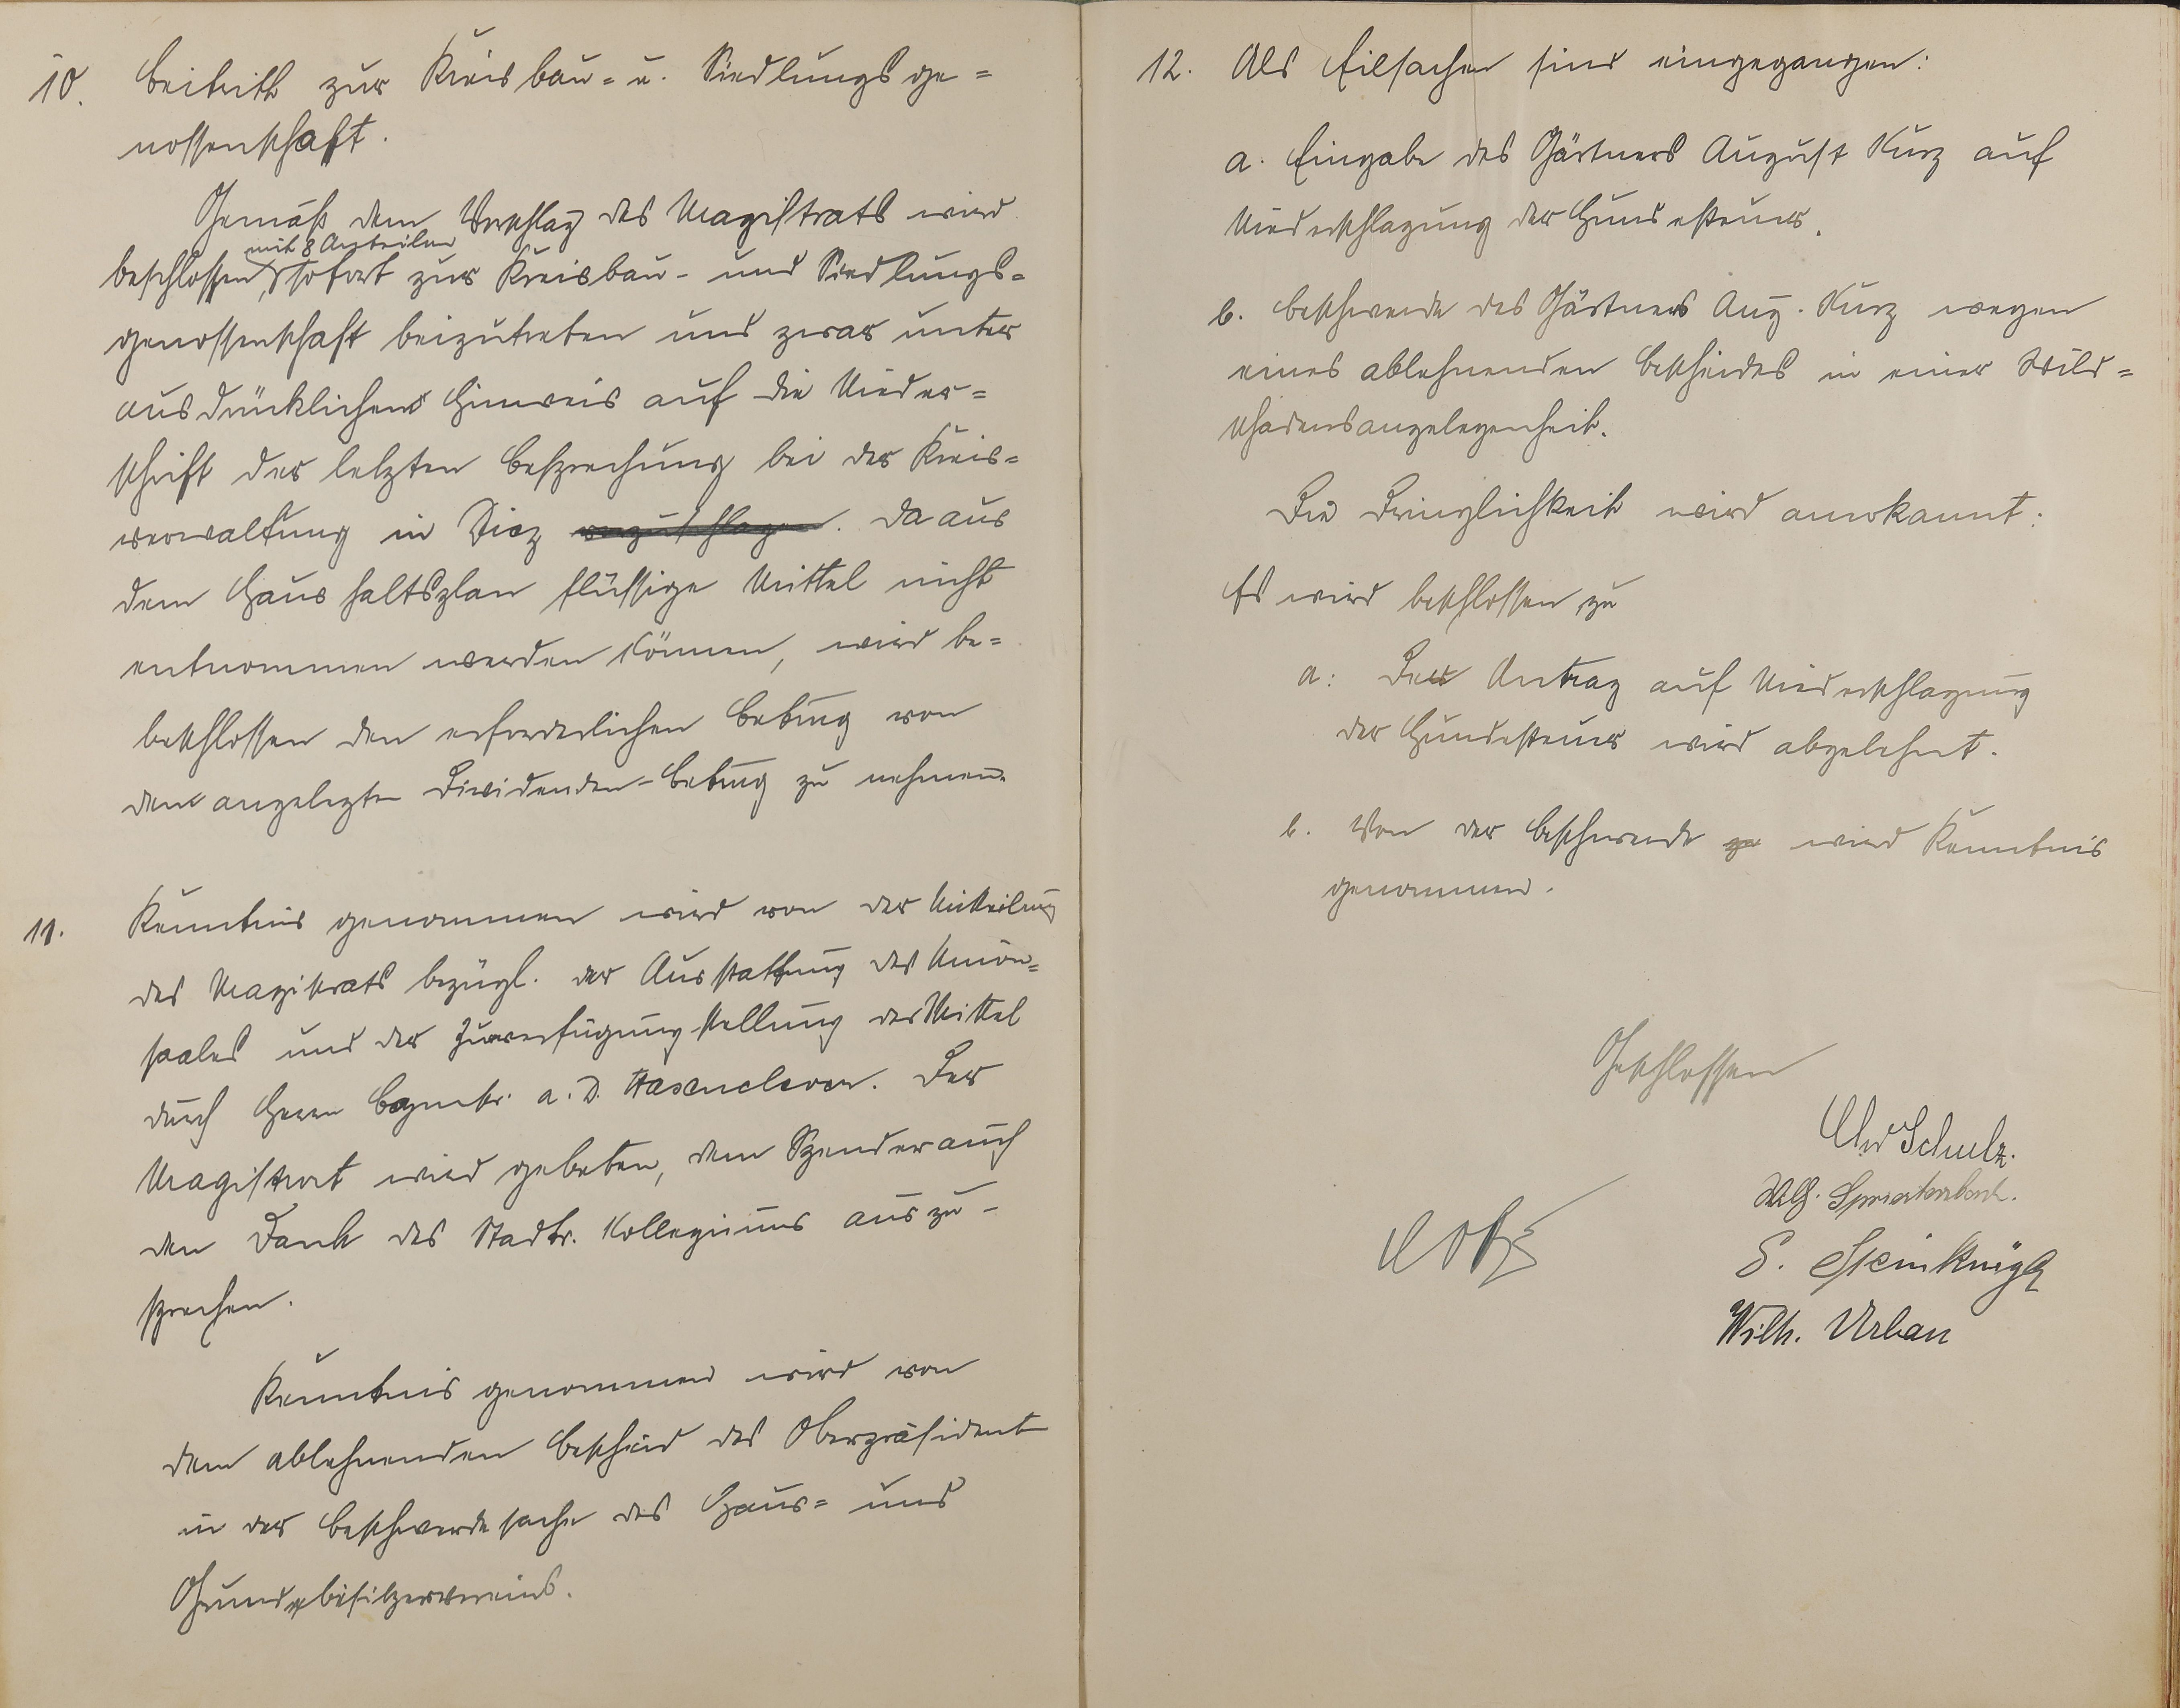 10. Beitritt zur Kreisbau- u. Siedlungsge=
nossenschaft.
Gemäß dem Vorschlag des Magistrats wird
mit 8 Anteilen
beschlossen, sofort zur Kreisbau- und Siedlungs=
genossenschaft beizutreten und zwar unter
ausdrücklichem Hinweis auf die Nieder=
schrift der letzten Besprechung bei der Kreis=
verwaltung in Diez vorzuschlagen. Da aus
dem Haushaltsplan flüssige Mittel nicht
entnommen werden können, wird be=
beschlossen den erforderlichen Betrag von
dem angelegten Dividenden-Betrag zu nehmen.
11. Kenntnis genommen wird von der Mitteilung
des Magistrats bezügl. der Ausstattung des Union=
saales und der Zurverfügungstellung der Mittel
durch Herrn Bgmstr. a. D. Hasenclever. Der
Magistrat wird gebeten, dem Spender auch
den Dank des Stadtv. Kollegiums auszu-
sprechen.
Kenntnis genommen wird von
dem ablehnenden Bescheid des Oberpräsident
in der Beschwerdesache des Haus= und
Grundbesitzervereins.
12. Als Eilsachen sind eingegangen:
a. Eingabe des Gärtners August Kurz auf
Niederschlagung der Hundesteuer.
b. Beschwerde des Gärtners Aug. Kurz wegen
eines ablehnenden Bescheides in einer Wild=
schadensangelegenheit.
Die Dringlichkeit wird anerkannt:
Es wird beschlossen zu
a: Der Antrag auf Niederschlagung
der Hundesteuer wird abgelehnt.
b. Von der Beschwerde wird Kenntnis
genommen.
Geschlossen
Schulz.
S. Steinkrügl
Wilh. Urban